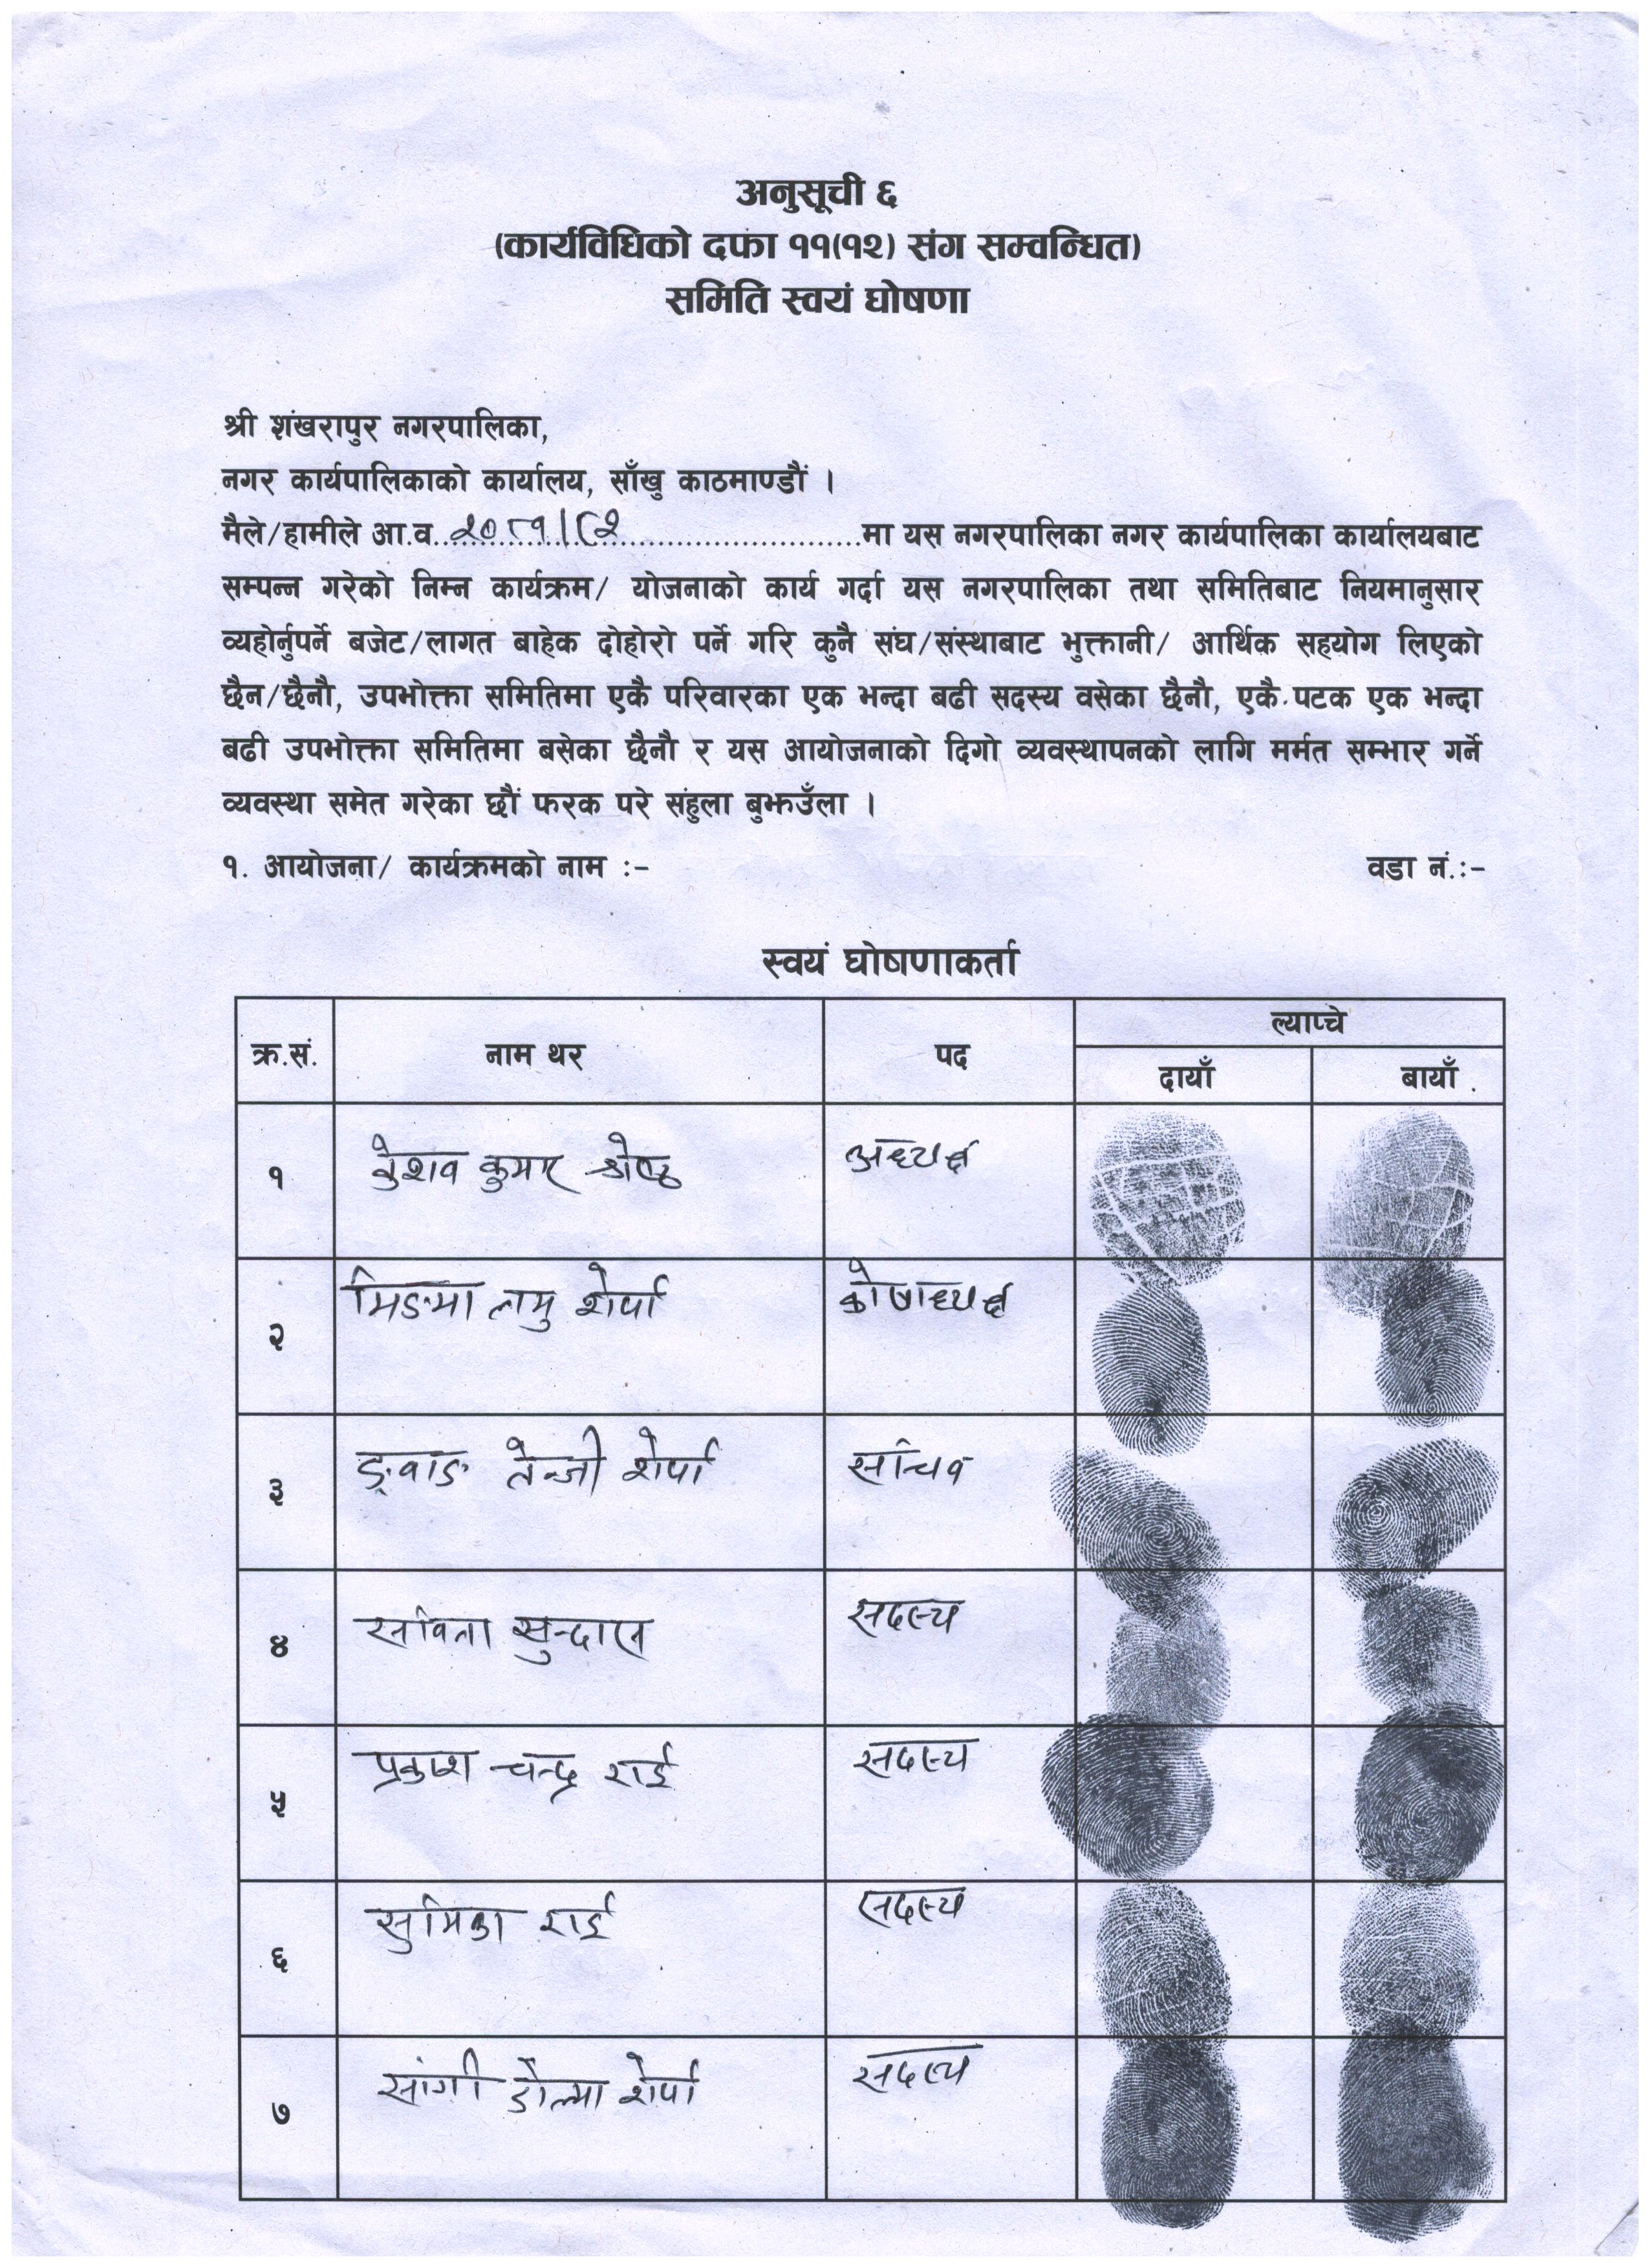 अनुसूची ६
(कार्यविधिको दफा ११(१२) संग सम्वन्धित)
समिति स्वयं घोषणा
श्री शंखरापुर नगरपालिका,
नगर कार्यपालिकाको कार्यालय, साँखु काठमाण्डौं ।
मैले/हामीले आ.व. २०८१/८२ मा यस नगरपालिका नगर कार्यपालिका कार्यालयबाट
सम्पन्न गरेको निम्न कार्यक्रम/ योजनाको कार्य गर्दा यस नगरपालिका तथा समितिबाट नियमानुसार
व्यहोर्नुपर्ने बजेट/लागत बाहेक दोहोरो पर्ने गरि कुनै संघ/संस्थाबाट भुक्तानी/ आर्थिक सहयोग लिएको
छैन/छैनौ, उपभोक्ता समितिमा एकै परिवारका एक भन्दा बढी सदस्य वसेका छैनौ, एकै पटक एक भन्दा
बढी उपभोक्ता समितिमा बसेका छैनौ र यस आयोजनाको दिगो व्यवस्थापनको लागि मर्मत सम्भार गर्ने
व्यवस्था समेत गरेका छौं फरक परे संहुला बुझउँला ।
१. आयोजना/ कार्यक्रमको नाम :- वडा नं.:-
स्वयं घोषणाकर्ता
क्र.सं. नाम थर पद ल्याप्चे
दायाँ बायाँ
१ केशव कुमार श्रेष्ठ अध्यक्ष
२ मिङमा लामु शेर्पा कोषाध्यक्ष
३ ङवाङ तेन्जी शेर्पा सचिव
४ सविता सदस्य
५ प्रकाश चन्द्र राई सदस्य
६ सुमिका राई सदस्य
७ सांगी डोल्मा शेर्पा सदस्य